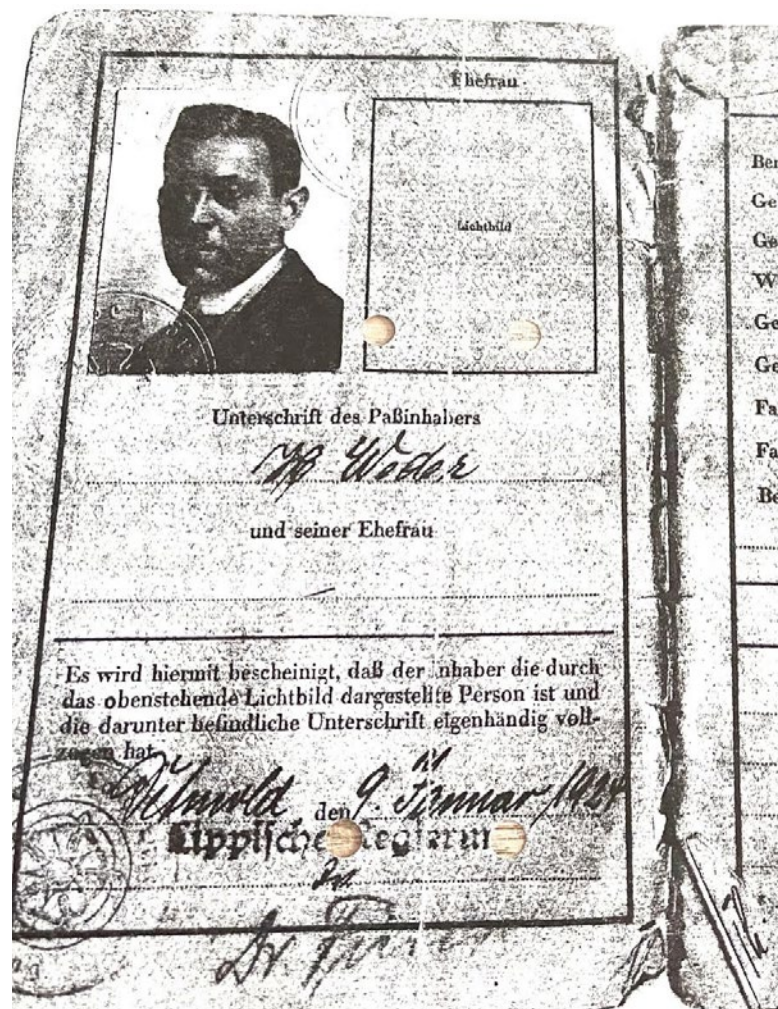 Ehefrau
Lichtbild
Unterschrift des Paßinhabers
Weder
und seiner Ehefrau
Es wird hiermit bescheinigt, daß der Inhaber die durch
das obenstehende Lichtbild dargestellte Person ist und
die darunter befindliche Unterschrift eigenhändig voll-
zogen hat
Detmold den 9. Januar 1924
Lippische Regierung
Dr.
Ber
Ge
W
Ge
Ge
Fa
Fa
Be